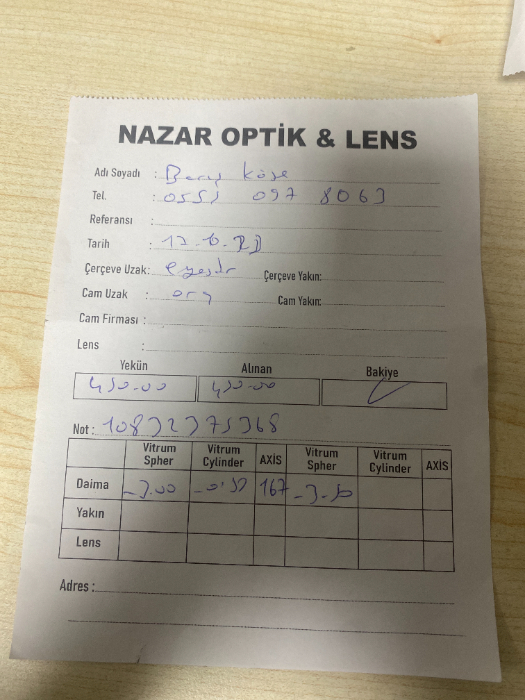 NAZAR OPTİK & LENS
Adı Soyadı : Barış Köse
Tel. : 0551 097 8063
Referansı :
Tarih :
Çerçeve Uzak: Çerçeve Yakın:
Cam Uzak : Cam Yakın:
Cam Firması :
Lens :
Yekün Alınan Bakiye
450.00 450.00
Not: 10832375368
Vitrum Spher Vitrum Cylinder AXİS Vitrum Spher Vitrum Cylinder AXİS
Daima -3.00 -0.50 167 -3.50
Yakın
Lens
Adres :